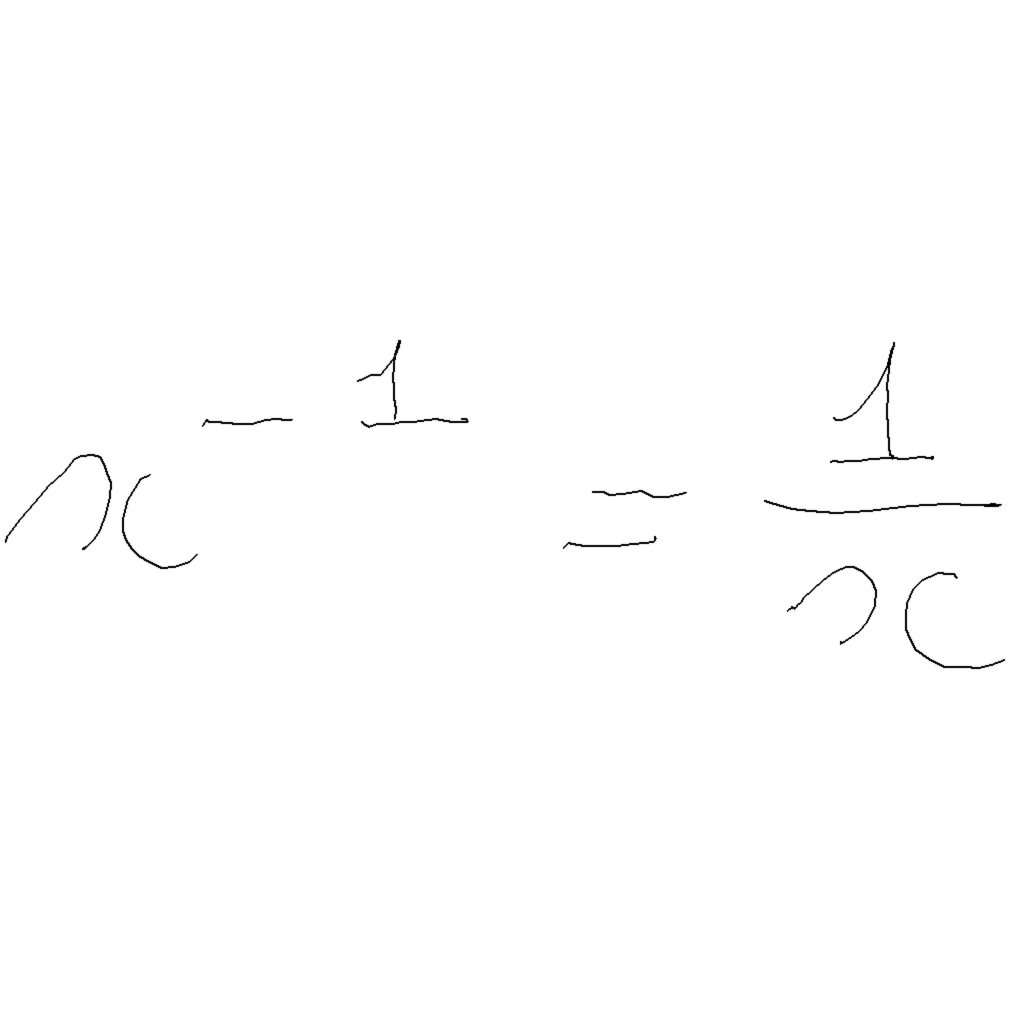 x^{-1} = \frac{1}{x}